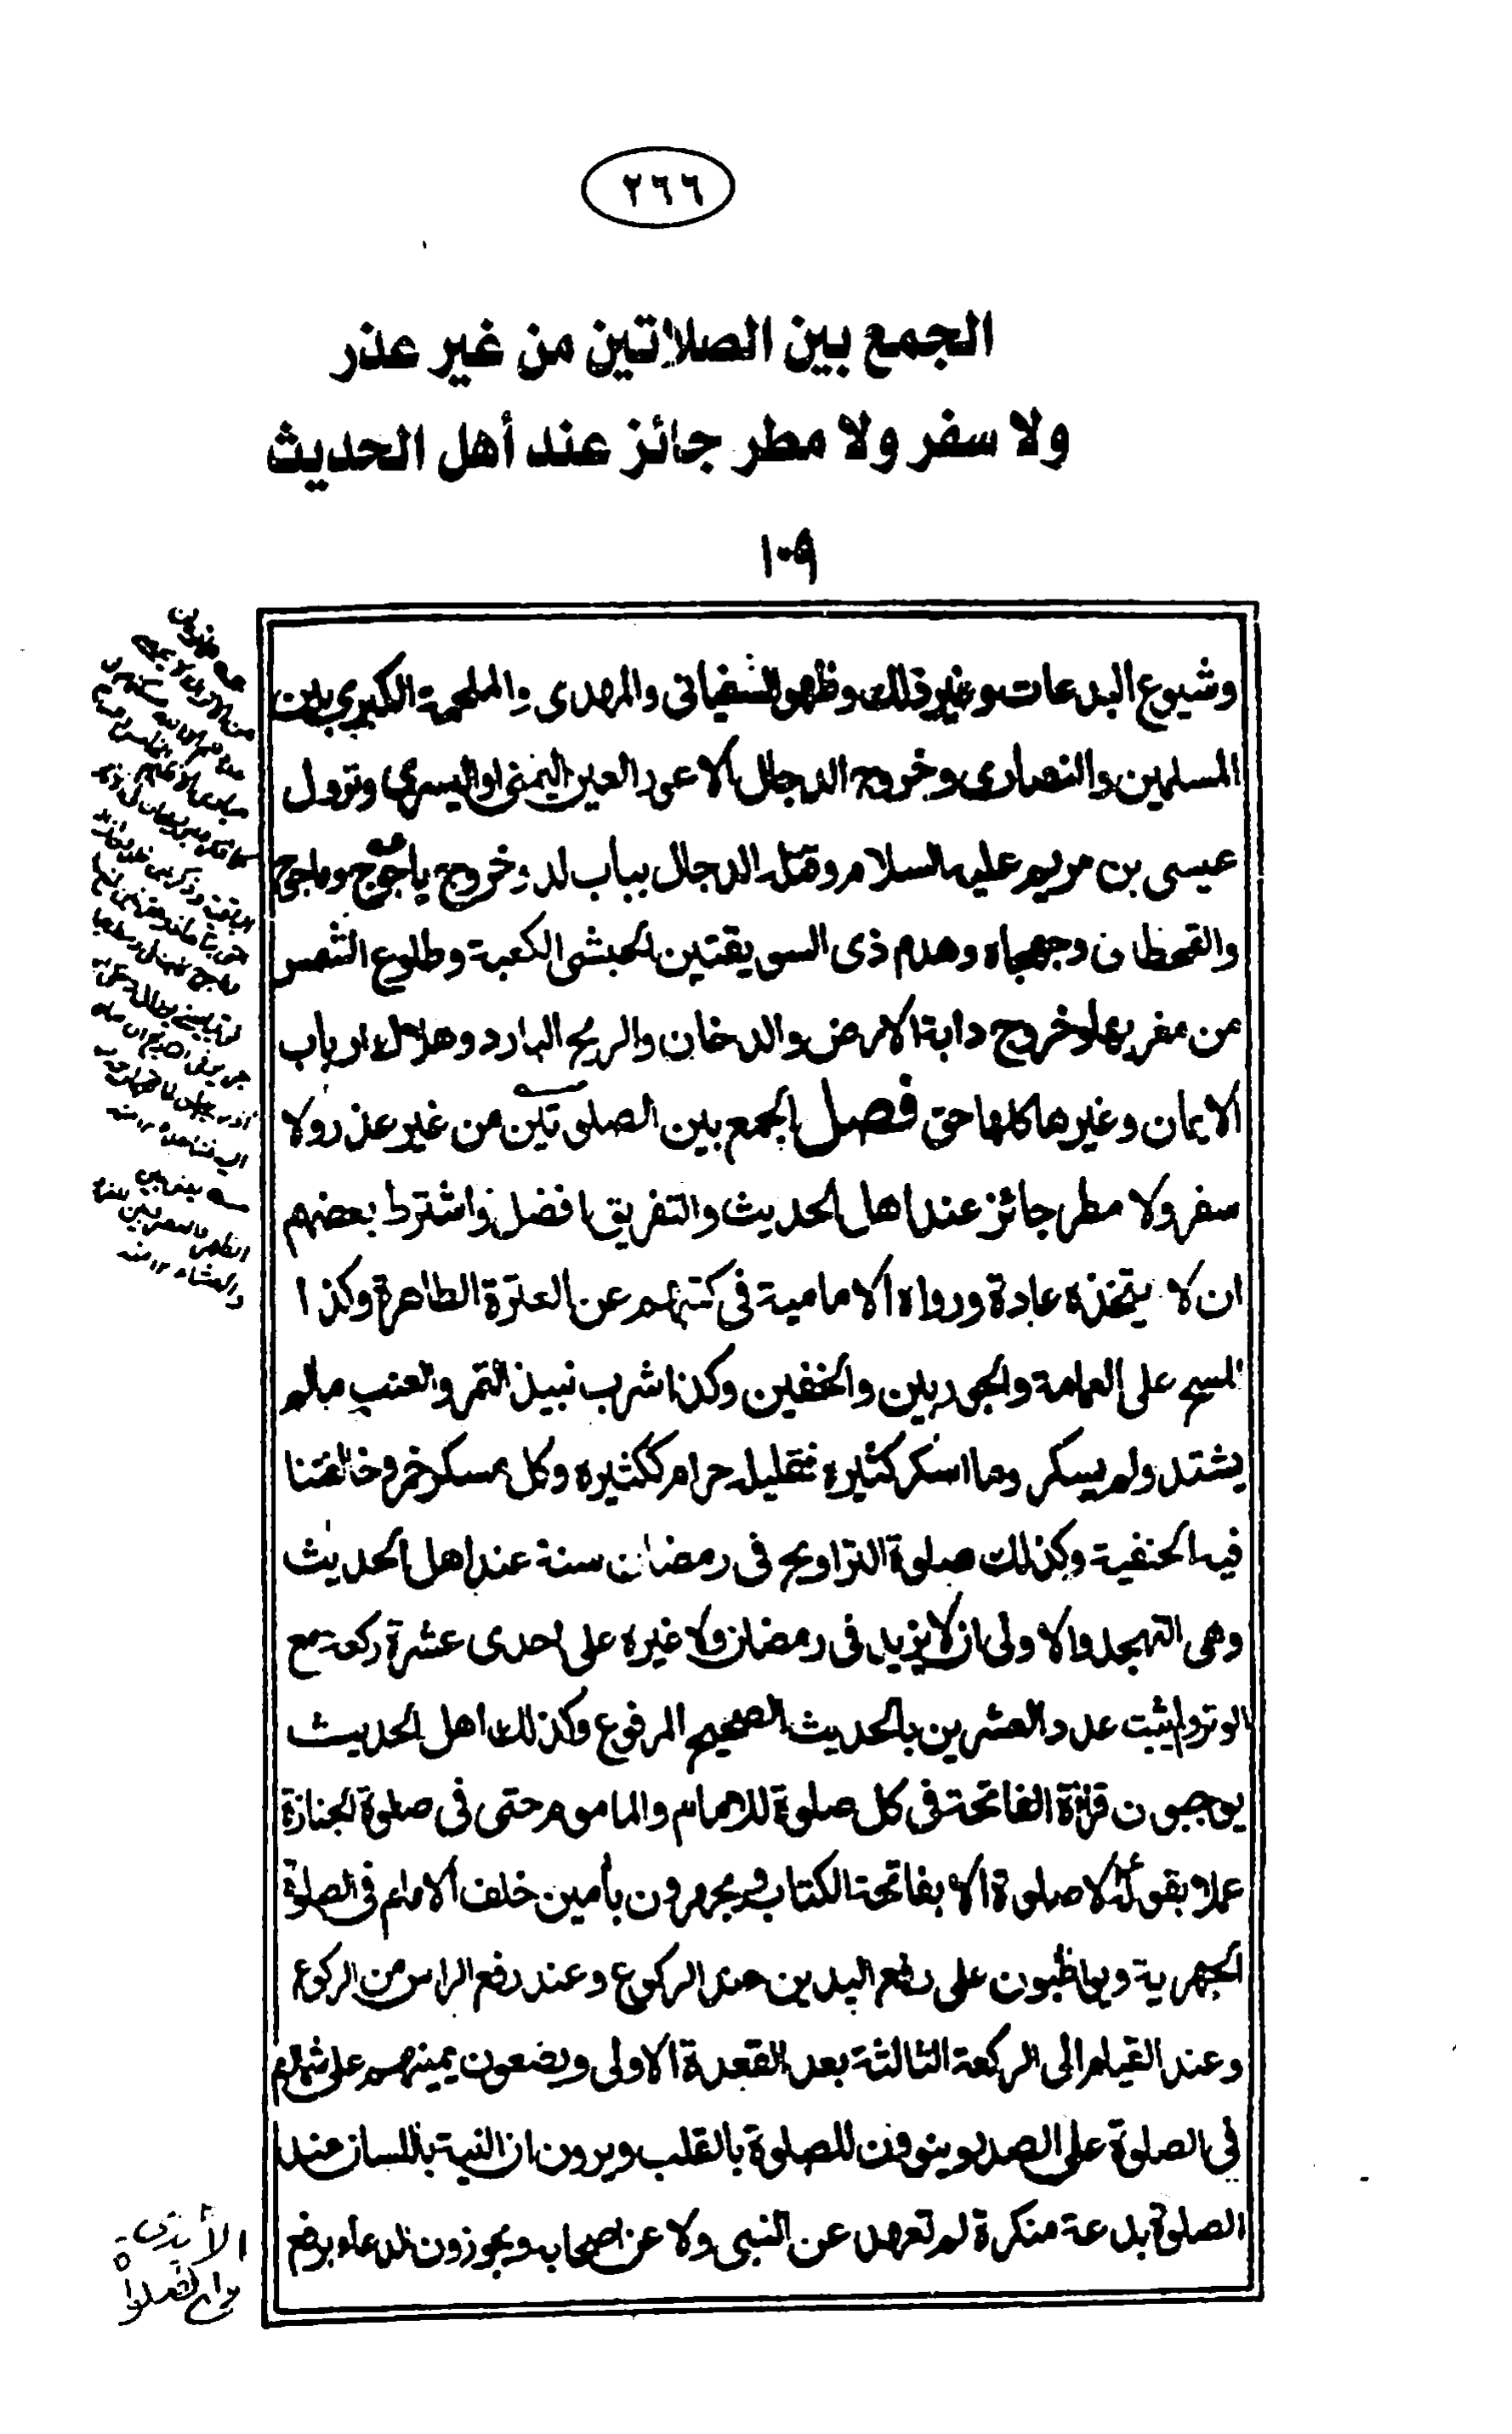 ٢٦٦
الجمع بين الصلاتين من غير عذر
ولا سفر ولا مطر جائز عند أهل الحديث
١٠٩
وشيوع البدعات وغير ذلك وظهور السفياني والمهدى والملحمة الكبرى بين
المسلمين والنصارى وخروج الدجال الاعور العين اليمنى او اليسرى ونزول
عيسى بن مريم عليه السلام وقتله الدجال بباب لد وخروج ياجوج وماجوج
والقحطان وجهجاه وهدم ذى السويقتين الحبشى الكعبة وطلوع الشمس
من مغربها وخروج دابة الارض والدخان والريح البارد وهلاك ارباب
الايمان وغيرها كلها حق فصل الجمع بين الصلوتين من غير عذر ولا
سفر ولا مطر جائز عند اهل الحديث والتفريق افضل واشترط بعضهم
ان لا يتخذه عادة ورواه الامامية فى كتبهم عن العترة الطاهرة وكذا
المسح على العمامة والجوربين والخفين وكذا شرب نبيذ التمر والعنب مالم
يشتد ولم يسكر وما اسكر كثيره فقليله حرام ككثيره وكل مسكر خمر وخالفنا
فيه الحنفية وكذلك صلوة التراويح فى رمضان سنة عند اهل الحديث
وهى التهجد والاولى ان لا يزيد فى رمضان ولا غيره على احدى عشرة ركعة مع
الوتر ولم يثبت عدد العشرين بالحديث الصحيح المرفوع وكذلك اهل الحديث
يوجبون قراءة الفاتحة فى كل صلوة للامام والماموم حتى فى صلوة الجنازة
عملا بقوله لا صلوة الا بفاتحة الكتاب ويجهرون بأمين خلف الامام فى الصلوة
الجهرية ويواظبون على رفع اليدين عند الركوع وعند رفع الراس من الركوع
وعند القيام الى الركعة الثالثة بعد القعدة الاولى ويضعون يمينهم على شمالهم
فى الصلوة على الصدر وينوون للصلوة بالقلب ويرون ان النية باللسان عند
الصلوة بدعة منكرة لم تعهد عن النبى ولا عن اصحابه ويجوزون الدعاء برفع
الأيدى